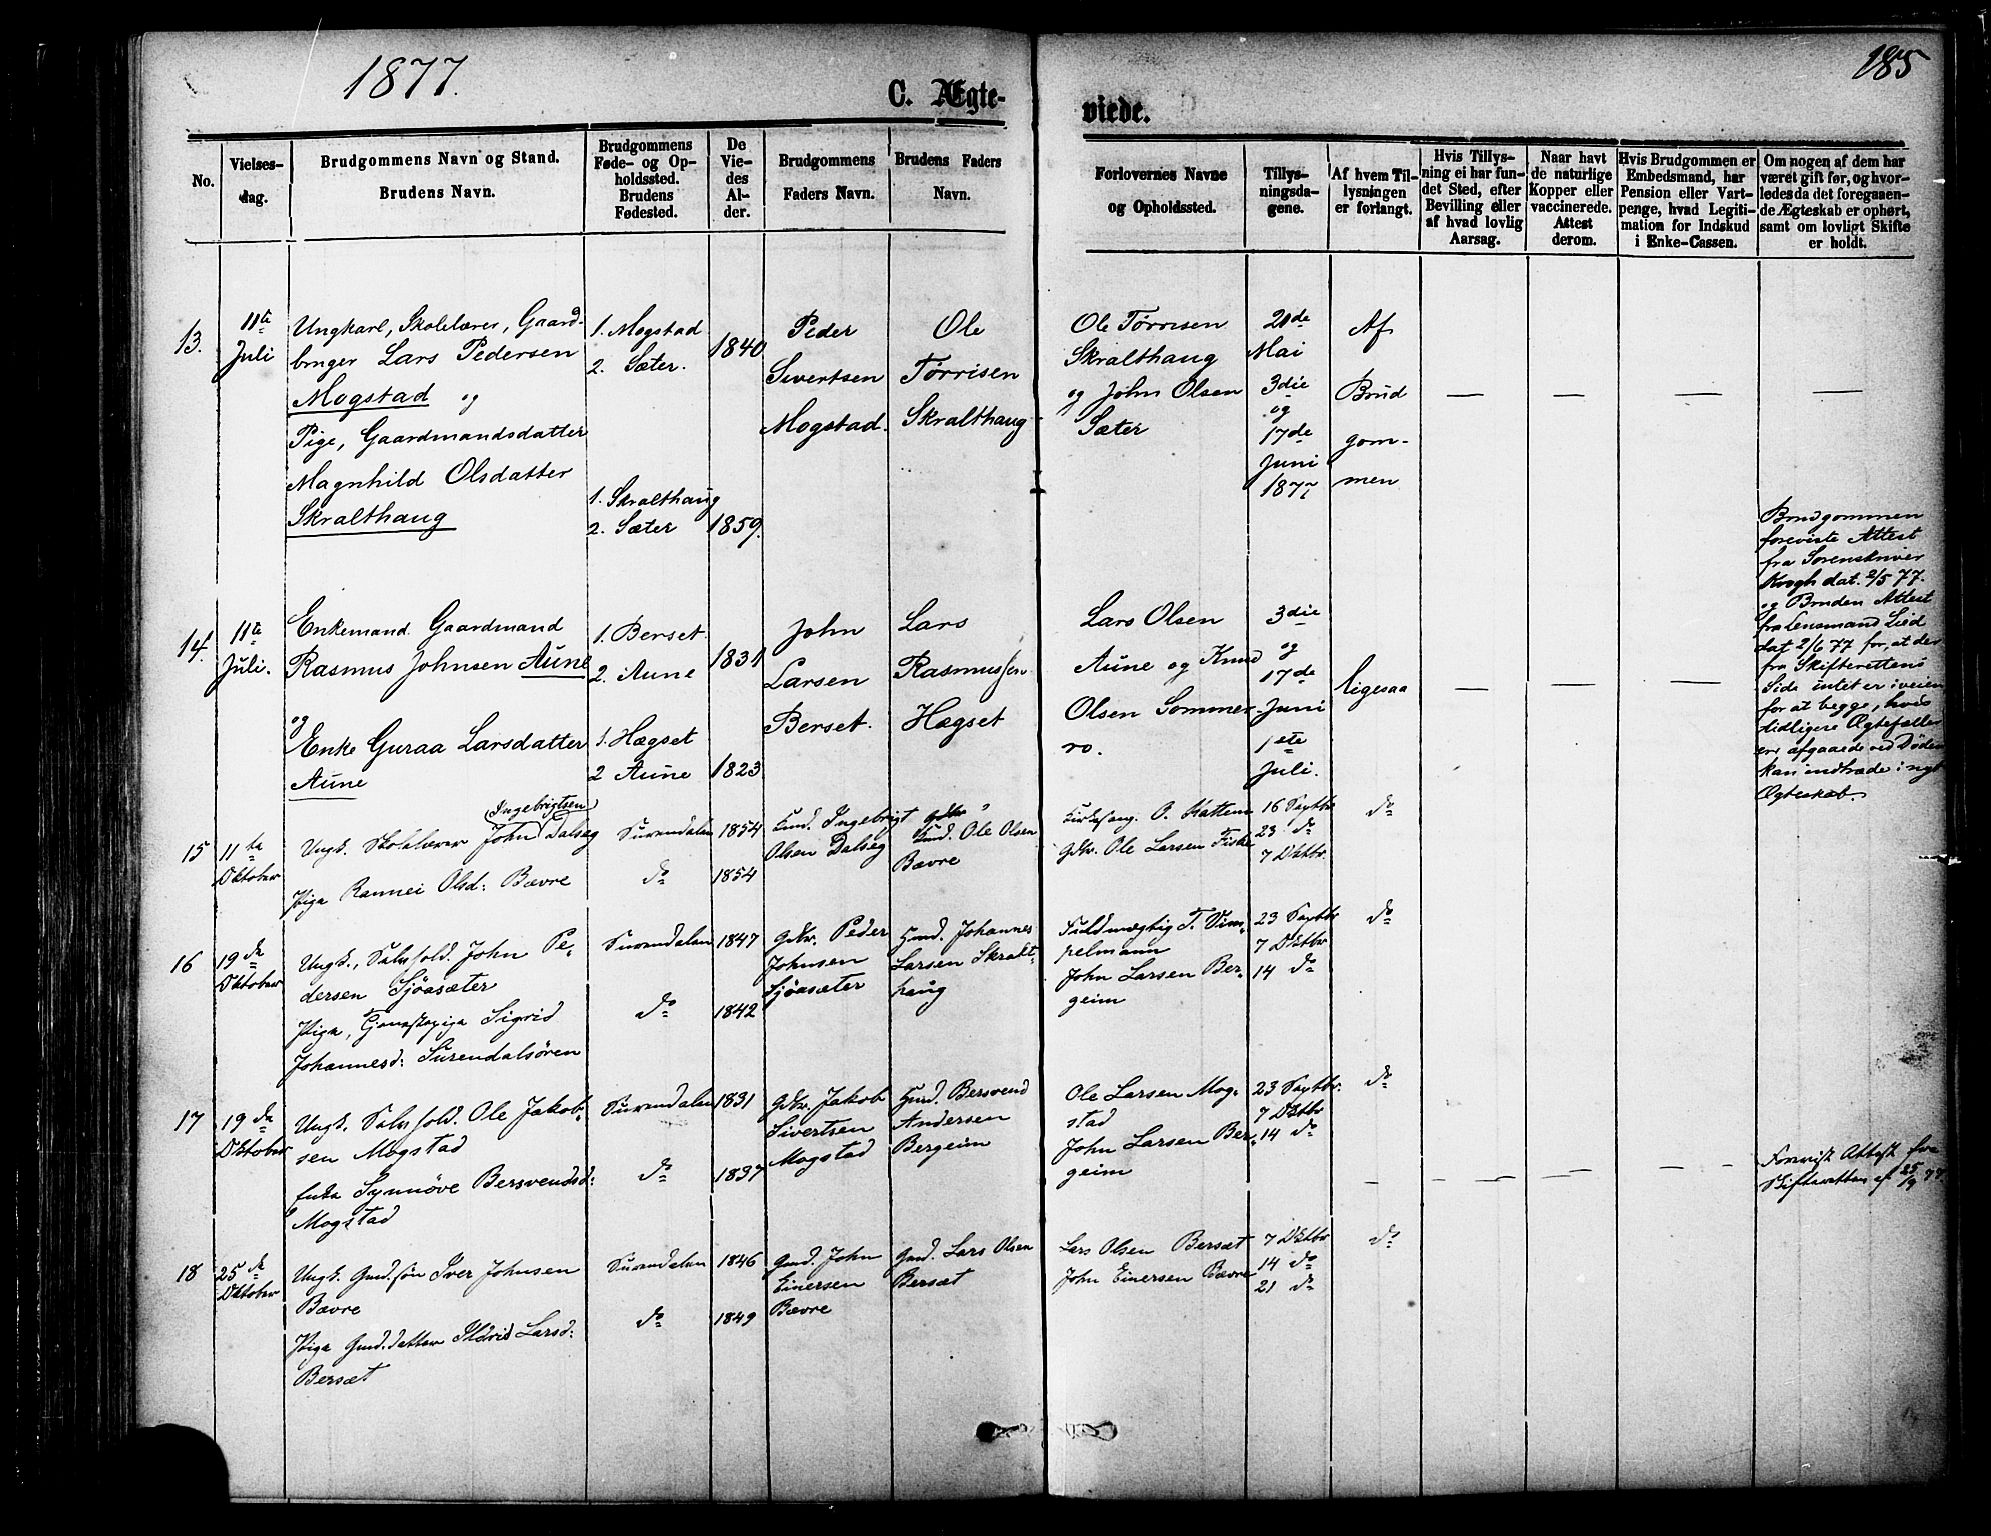 1877.
185
C. Ægte-
viede.
No.
Vielses-
dag.
Brudgommens Navn og Stand.
Brudens Navn.
Brudgommens
Føde- og Op-
holdssted.
Brudens
Fødested.
De
Vie-
des
Al-
der.
Brudgommens
Faders Navn.
Brudens Faders
Navn.
Forlovernes Navne
og Opholdssted.
Tillys-
ningsda-
gene.
Af hvem Til-
lysningen
er forlangt.
Hvis Tillys-
ning ei har fun-
det Sted, efter
Bevilling eller
af hvad lovlig
Aarsag.
Naar havt
de naturlige
Kopper eller
vaccinerede.
Attest
derom.
Hvis Brudgommen er
Embedsmand, har
Pension eller Vart-
penge, hvad Legiti-
mation for Indskud
i Enke-Cassen.
Om nogen af dem har
været gift før, og hvor-
ledes da det foregaaen-
de Ægteskab er ophørt,
samt om lovligt Skifte
er holdt.
13.
11te
Juli
Ungkarl, Skolelærer, Gaard-
bruger Lars Pedersen
Mogstad og
Pige, Gaardmandsdatter
Magnhild Olsdatter
Skralthaug
1. Mogstad
2. Sæter.
1. Skralthaug
2. Sæter
1840
1859.
Peder
Sivertsen
Mogstad.
Ole
Tørrisen
Skralthaug
Ole Tørrisen
Skralthaug
og John Olsen
Sæter
21de
Mai
3die
og
17de
Juni
1877
Af
Brud
gom-
men
14.
11te
Juli.
Enkemand Gaardmand
Rasmus Johnsen Aune
og
Enke Guraa Larsdatter
Aune
1. Berset.
2. Aune
1. Hægset
2 Aune
1831
1823
John
Larsen
Berset.
Lars
Rasmussen
Hægset
Lars Olsen
Aune og Knud
Olsen Sommer-
ro.
3die
og
17de
Juni
1ste
Juli.
ligesaa
Brudgommen
foreviste Attest
fra Sorenskriver
Krogh dat. 2/5 77.
og Bruden Attest
fra Lensmand Lied
dat 2/6 77 for, at der
fra Skifterettens
Side intet er i veien
for at begge, hvis
tidligere Ægtefæller
ere afgaaede ved Døden
kan indtræde i nyt
Ægteskab.
15
11te
Oktober
Ingebrigtsen
Ungk. Skolelærer John Dalseg
Pige Rannei Olsd: Bævre
Surendalen
do
1854
1854
Ingebrigt
Olsen Dalseg
Gbr.
Ole Olsen
Bævre
Kirkesang. O. Kattem
Gbr. Ole Larsen Fiske
16 Septbr
23 do
7 Oktbr.
do
16
19de
Oktober
Ungk., John Pe-
dersen Sjöasæter
Pige, Tjenestepige Sigrid
Johannesd: Surendalsören
Surendalen
do
1847
1842
Gbr. Peder
Johnsen
Sjöasæter
Johannes
Larsen Skralt-
haug
Fuldmægtig T. Dim-
pelmann
John Larsen Ber-
geim
23 Septbr
7 Oktbr
14 do
do
17
19de
Oktober
Ungk. Ole Jakob-
sen Mogstad
Enke Synnöve Bersvendsd:
Mogstad
Surendalen
do
1831
1837
Gbr. Jakob
Sivertsen
Mogstad
Bersvend
Andersen
Bergeim
Ole Larsen Mog-
stad
John Larsen Ber-
geim
23 Septbr.
7 Oktbr
14 do
do
Forevist Attest fra
Skifteretten af 25/9 77.
18
25de
Oktober
Ungk. Gmd.søn Iver Johnsen
Bævre
Pige Gmd.datter Ildrid Larsd:
Bersæt
Surendalen
do
1846
1849
Gmd. John
Einersen
Bævre
Gmd. Lars Olsen
Bersæt
Lars Olsen Bersæt
John Einersen Bævre
7 Oktbr
14 do
21 do
do